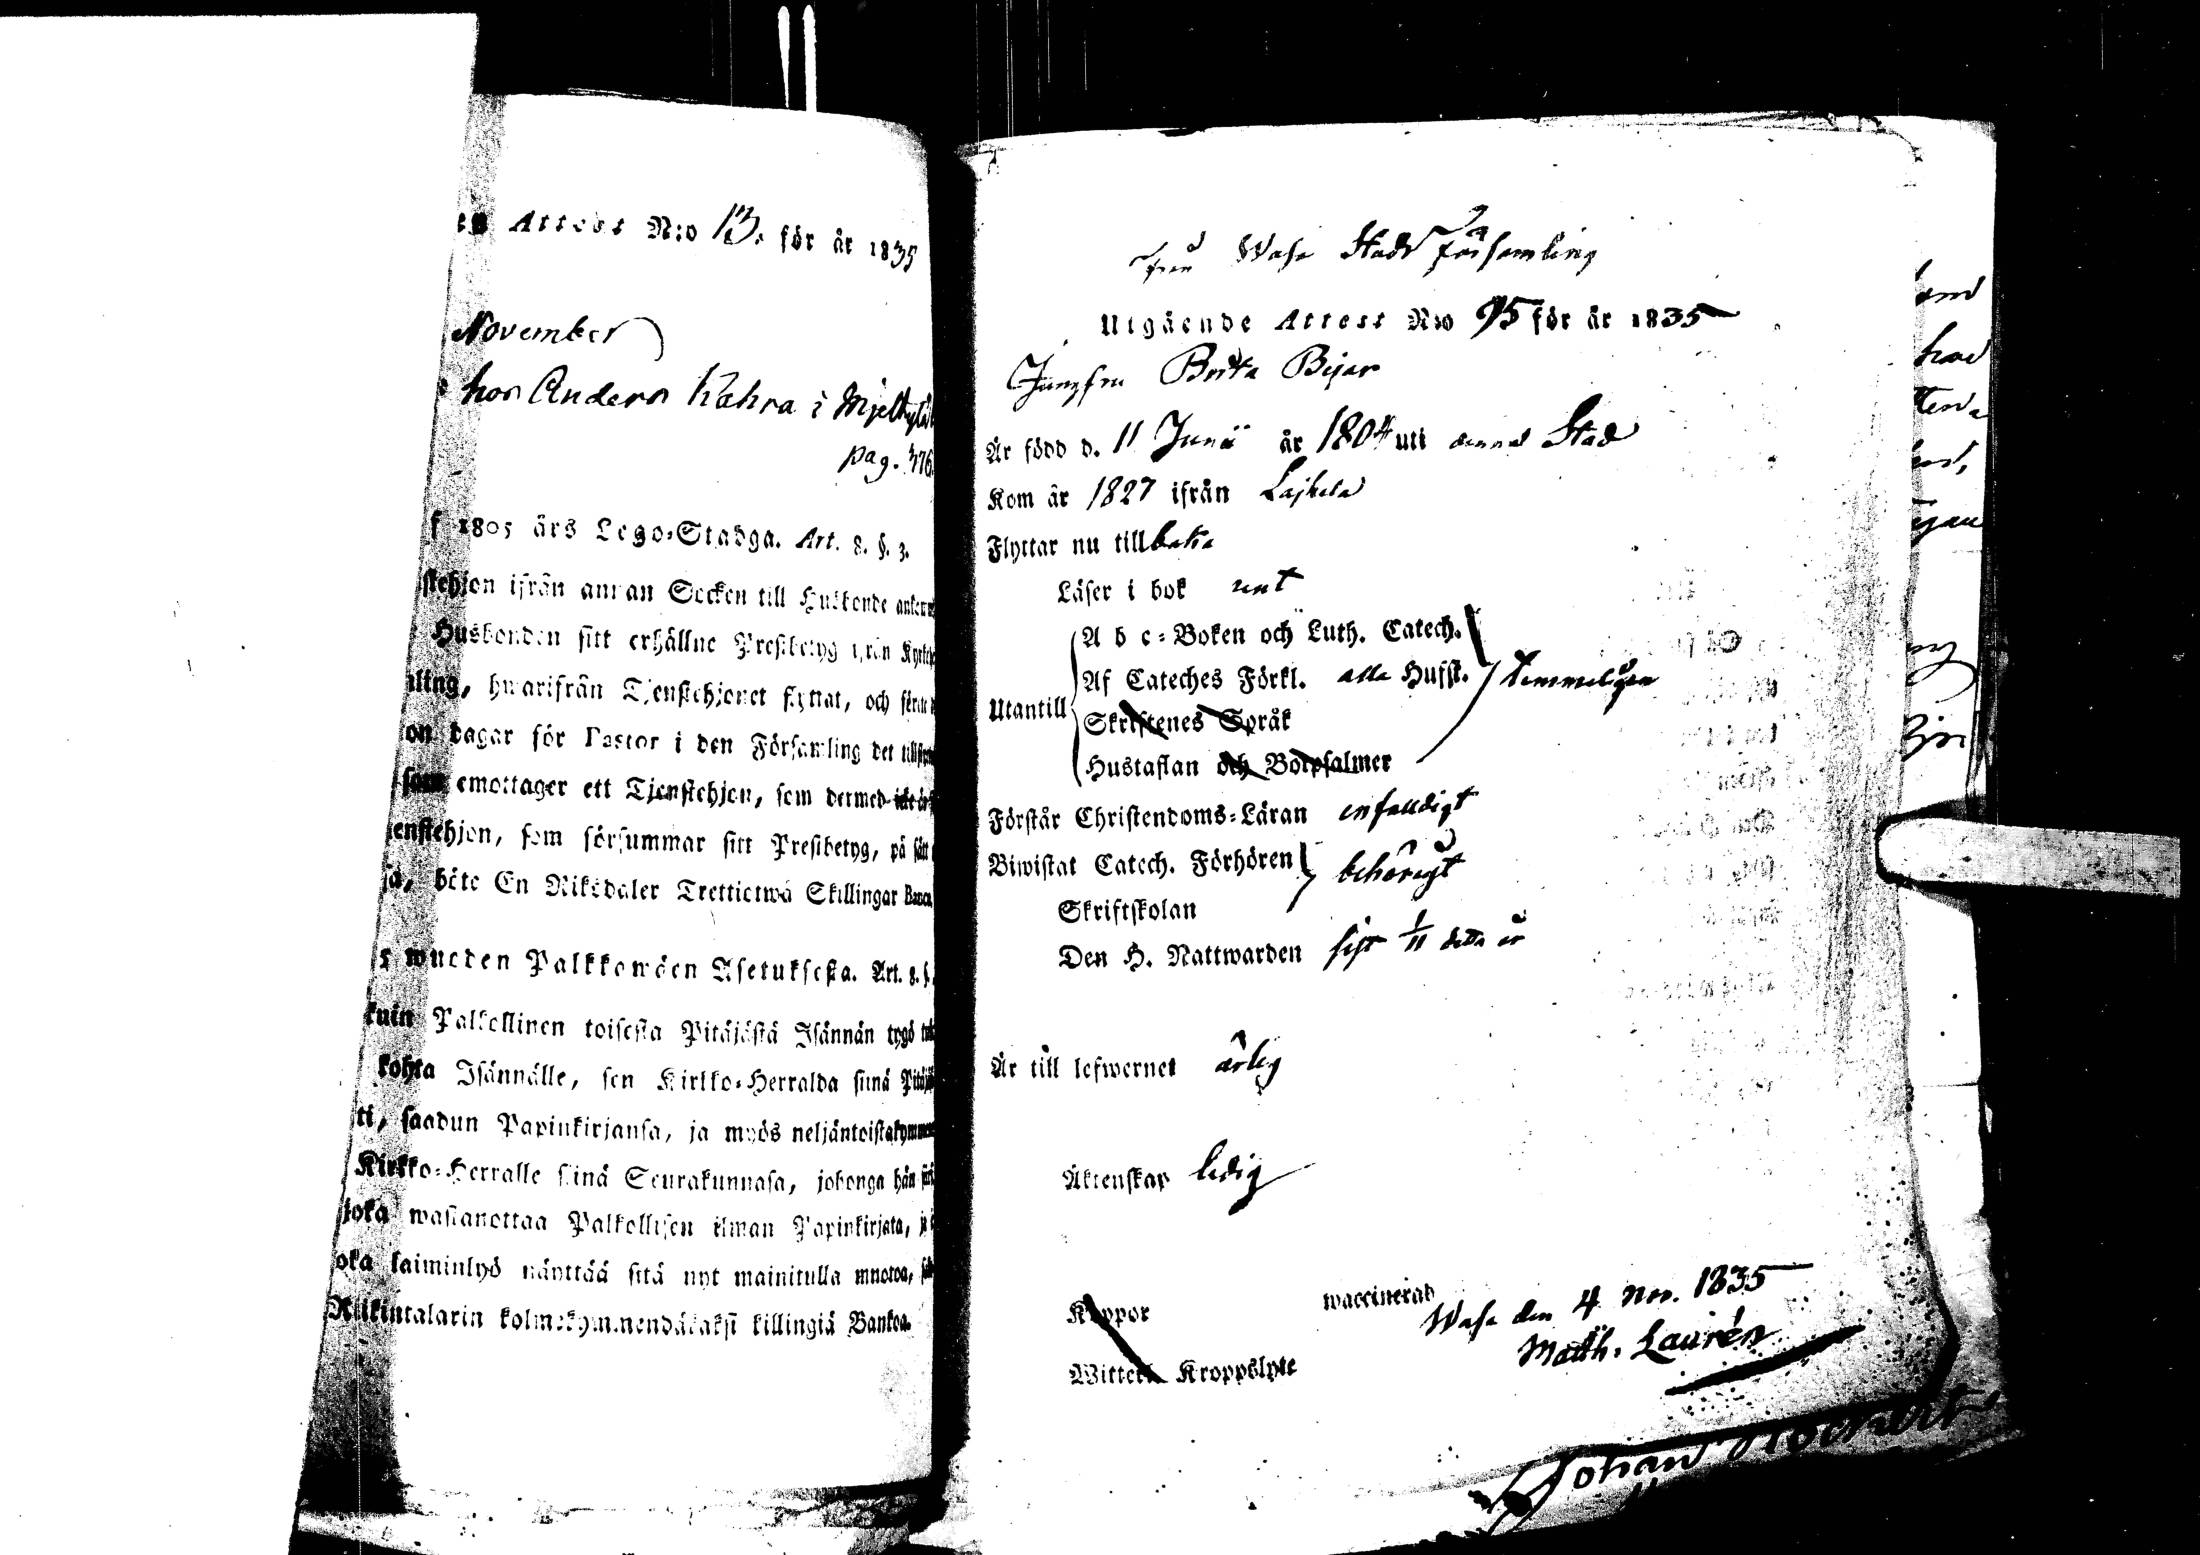 Attest N:o 13. för år 1835
November
hos Anders Kahra i Mjelby
pag. 376.
1805 års Lego-Stadga. Art. 8. §. 3.
stehjon ifrån annan Socken till Husbonde
Husbonden sitt erhållne Prestbetyg ifrån
ling, hwarifrån Tjenstehjonet flyttat, och
on dagar för Pastor i den Församling det
som emottager ett Tjenstehjon, som dermed icke
enstehjon, som försummar sitt Prestbetyg, på sätt
böte En Riksdaler Trettietwå Skillingar Banco.
wuoden Palkkowäen Asetuksesta. Art. 8. §.
kuin Palkollinen toisesta Pitäjästä Isännän tygö
kohta Isännälle, sen Kirkko-Herralda siinä
ti, saadun Papinkirjansa, ja myös neljäntoistakymmen
Kirkko-Herralle siinä Seurakunnasa, johonga hän
joka wastanottaa Palkollisen ilman Papinkirjata,
oka laiminlyö näyttää sitä nyt mainitulla muotoa,
Riikintalarin kolmekymmendäkaksi killingiä Bankoa.
från Wasa Stads Församling
Utgående Attest N:o 95 för år 1835
Jungfru Brita Bijar
Är född d. 11 Junii år 1804 uti denna Stad
Kom år 1827 ifrån Lajhela
Flyttar nu tillbaka
Läser i bok rent
Utantill
A b c-Boken och Luth. Catech.
Af Cateches Förkl. alla Hufst.
Temmeligen
Skriftenes Språk
Hustaflan och Botpsalmer
Förstår Christendoms-Läran enfaldigt
Biwistat Catech. Förhören
behörigt
Skriftskolan
Den H. Nattwarden sist 1/11 detta år
Är till lefwernet ärlig
Äktenskap ledig
Koppor waccinerad
Witterl. Kroppslyte
Wasa den 4 Nov. 1835
Matth. Laurén
Johan